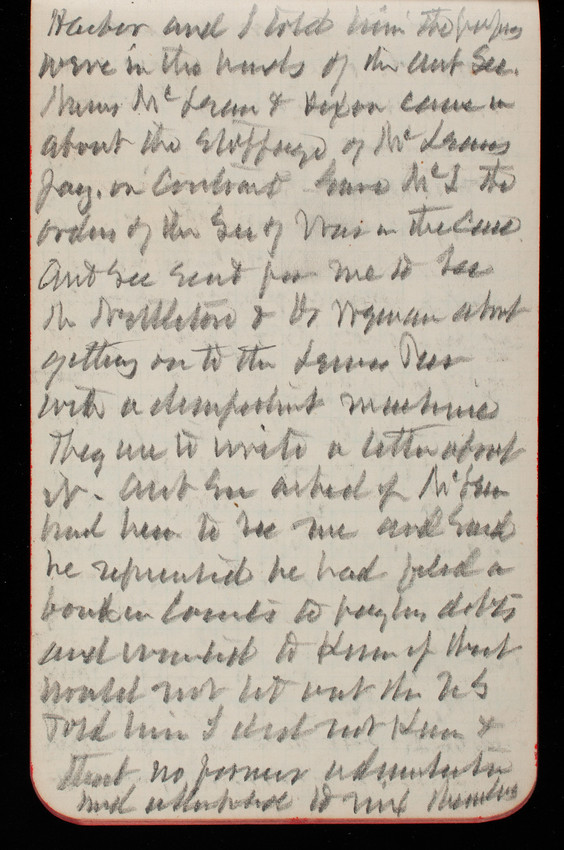 and I told him the papers
were in the hands of the Asst Sec.
Mc Lean & Dixon came in
about the stoppage of Mc Leans
pay. on Contract Gave Mc L the
orders of the Sec of War in the Case
Asst Sec sent for me to see
Mr Middleton & Dr Wyman about
getting on to the Pier
with a disinfecting machine
They are to write a letter about
it - Asst Sec asked if Mc Lean
had been to see me and said
he represented he had filed a
bond in Courts to pay his debts
and wanted to know if that
would not let out the US
Told him I did not know &
that no former
had attempted to